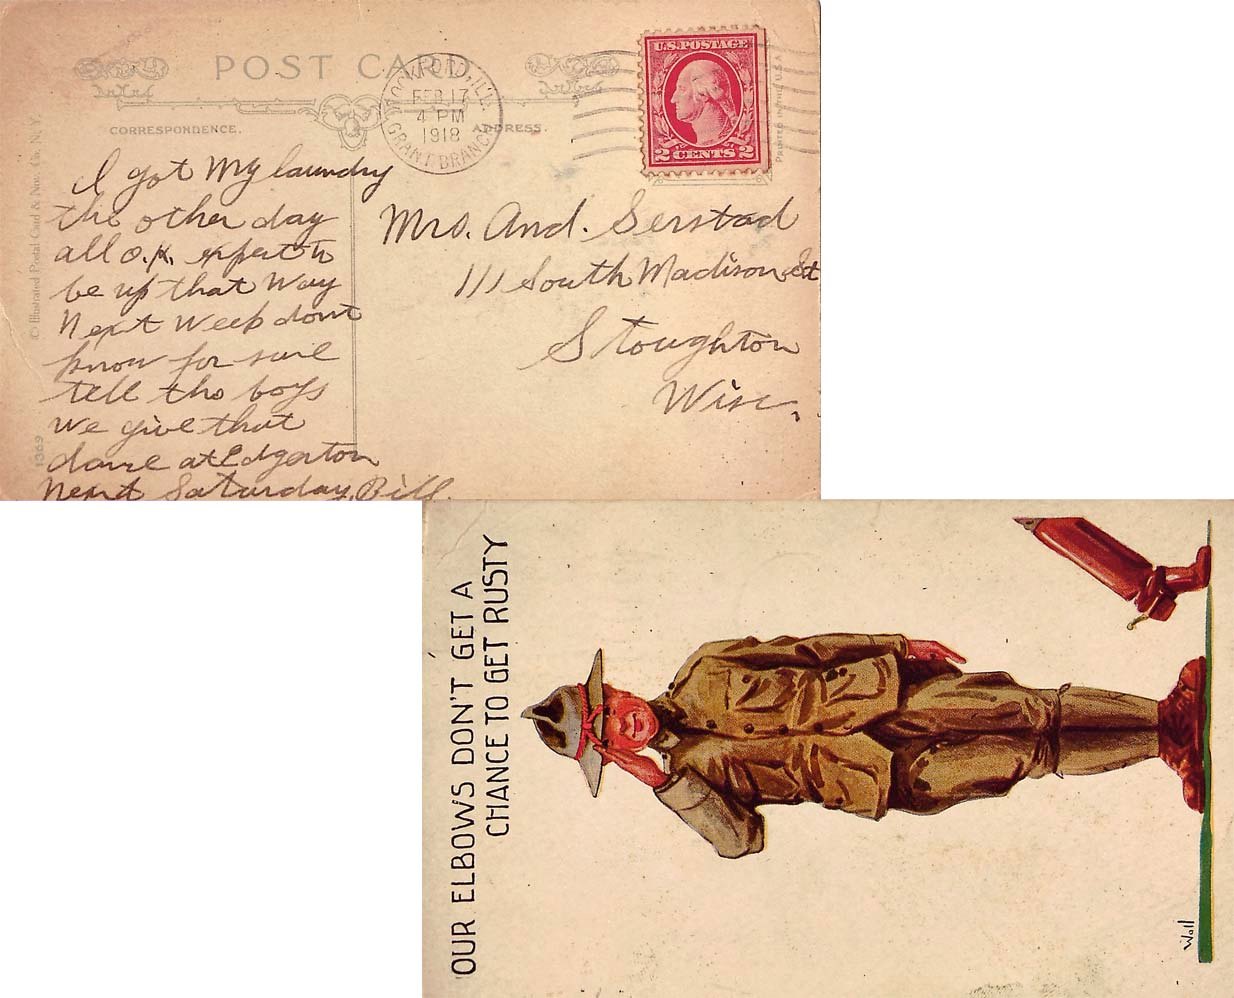 POST CARD
ROCKFORD, ILL.
FEB 17
4 PM
1918
GRANT BRANCH
U.S. POSTAGE
2 CENTS 2
PRINTED IN THE U.S.A.
CORRESPONDENCE.
ADDRESS.
© Illustrated Postal Card & Nov. Co. N.Y.
1369
I got My laundry
the other day
all O.K. expect to
be up that Way
Next Week dont
know for sure
tell the boys
we give that
dance at Edgerton
Next Saturday. Bill.
Mrs. And. Serstad
111 South Madison St
Stoughton
Wisc.
OUR ELBOWS DON'T GET A
CHANCE TO GET RUSTY
Wall